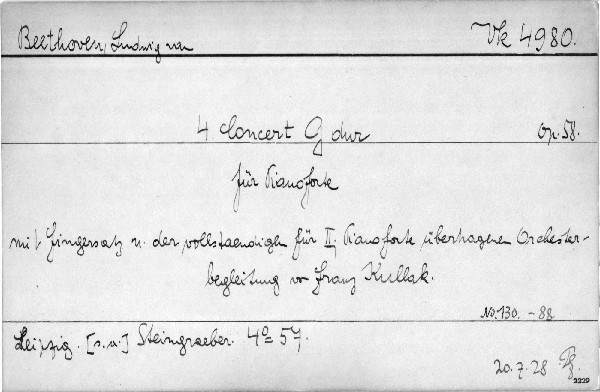 Beethoven, Ludwig van
Vk 4980.
4 Concert G dur
Op. 58.
für Pianoforte
mit Fingersatz u. der vollstaendigen für II, Pianoforte übertragenen Orchester-
begleitung von Franz Kullak.
No. 130. - 88
Leipzig. [s.a.] Steingraeber. 4° 57.
20.7.28
2229